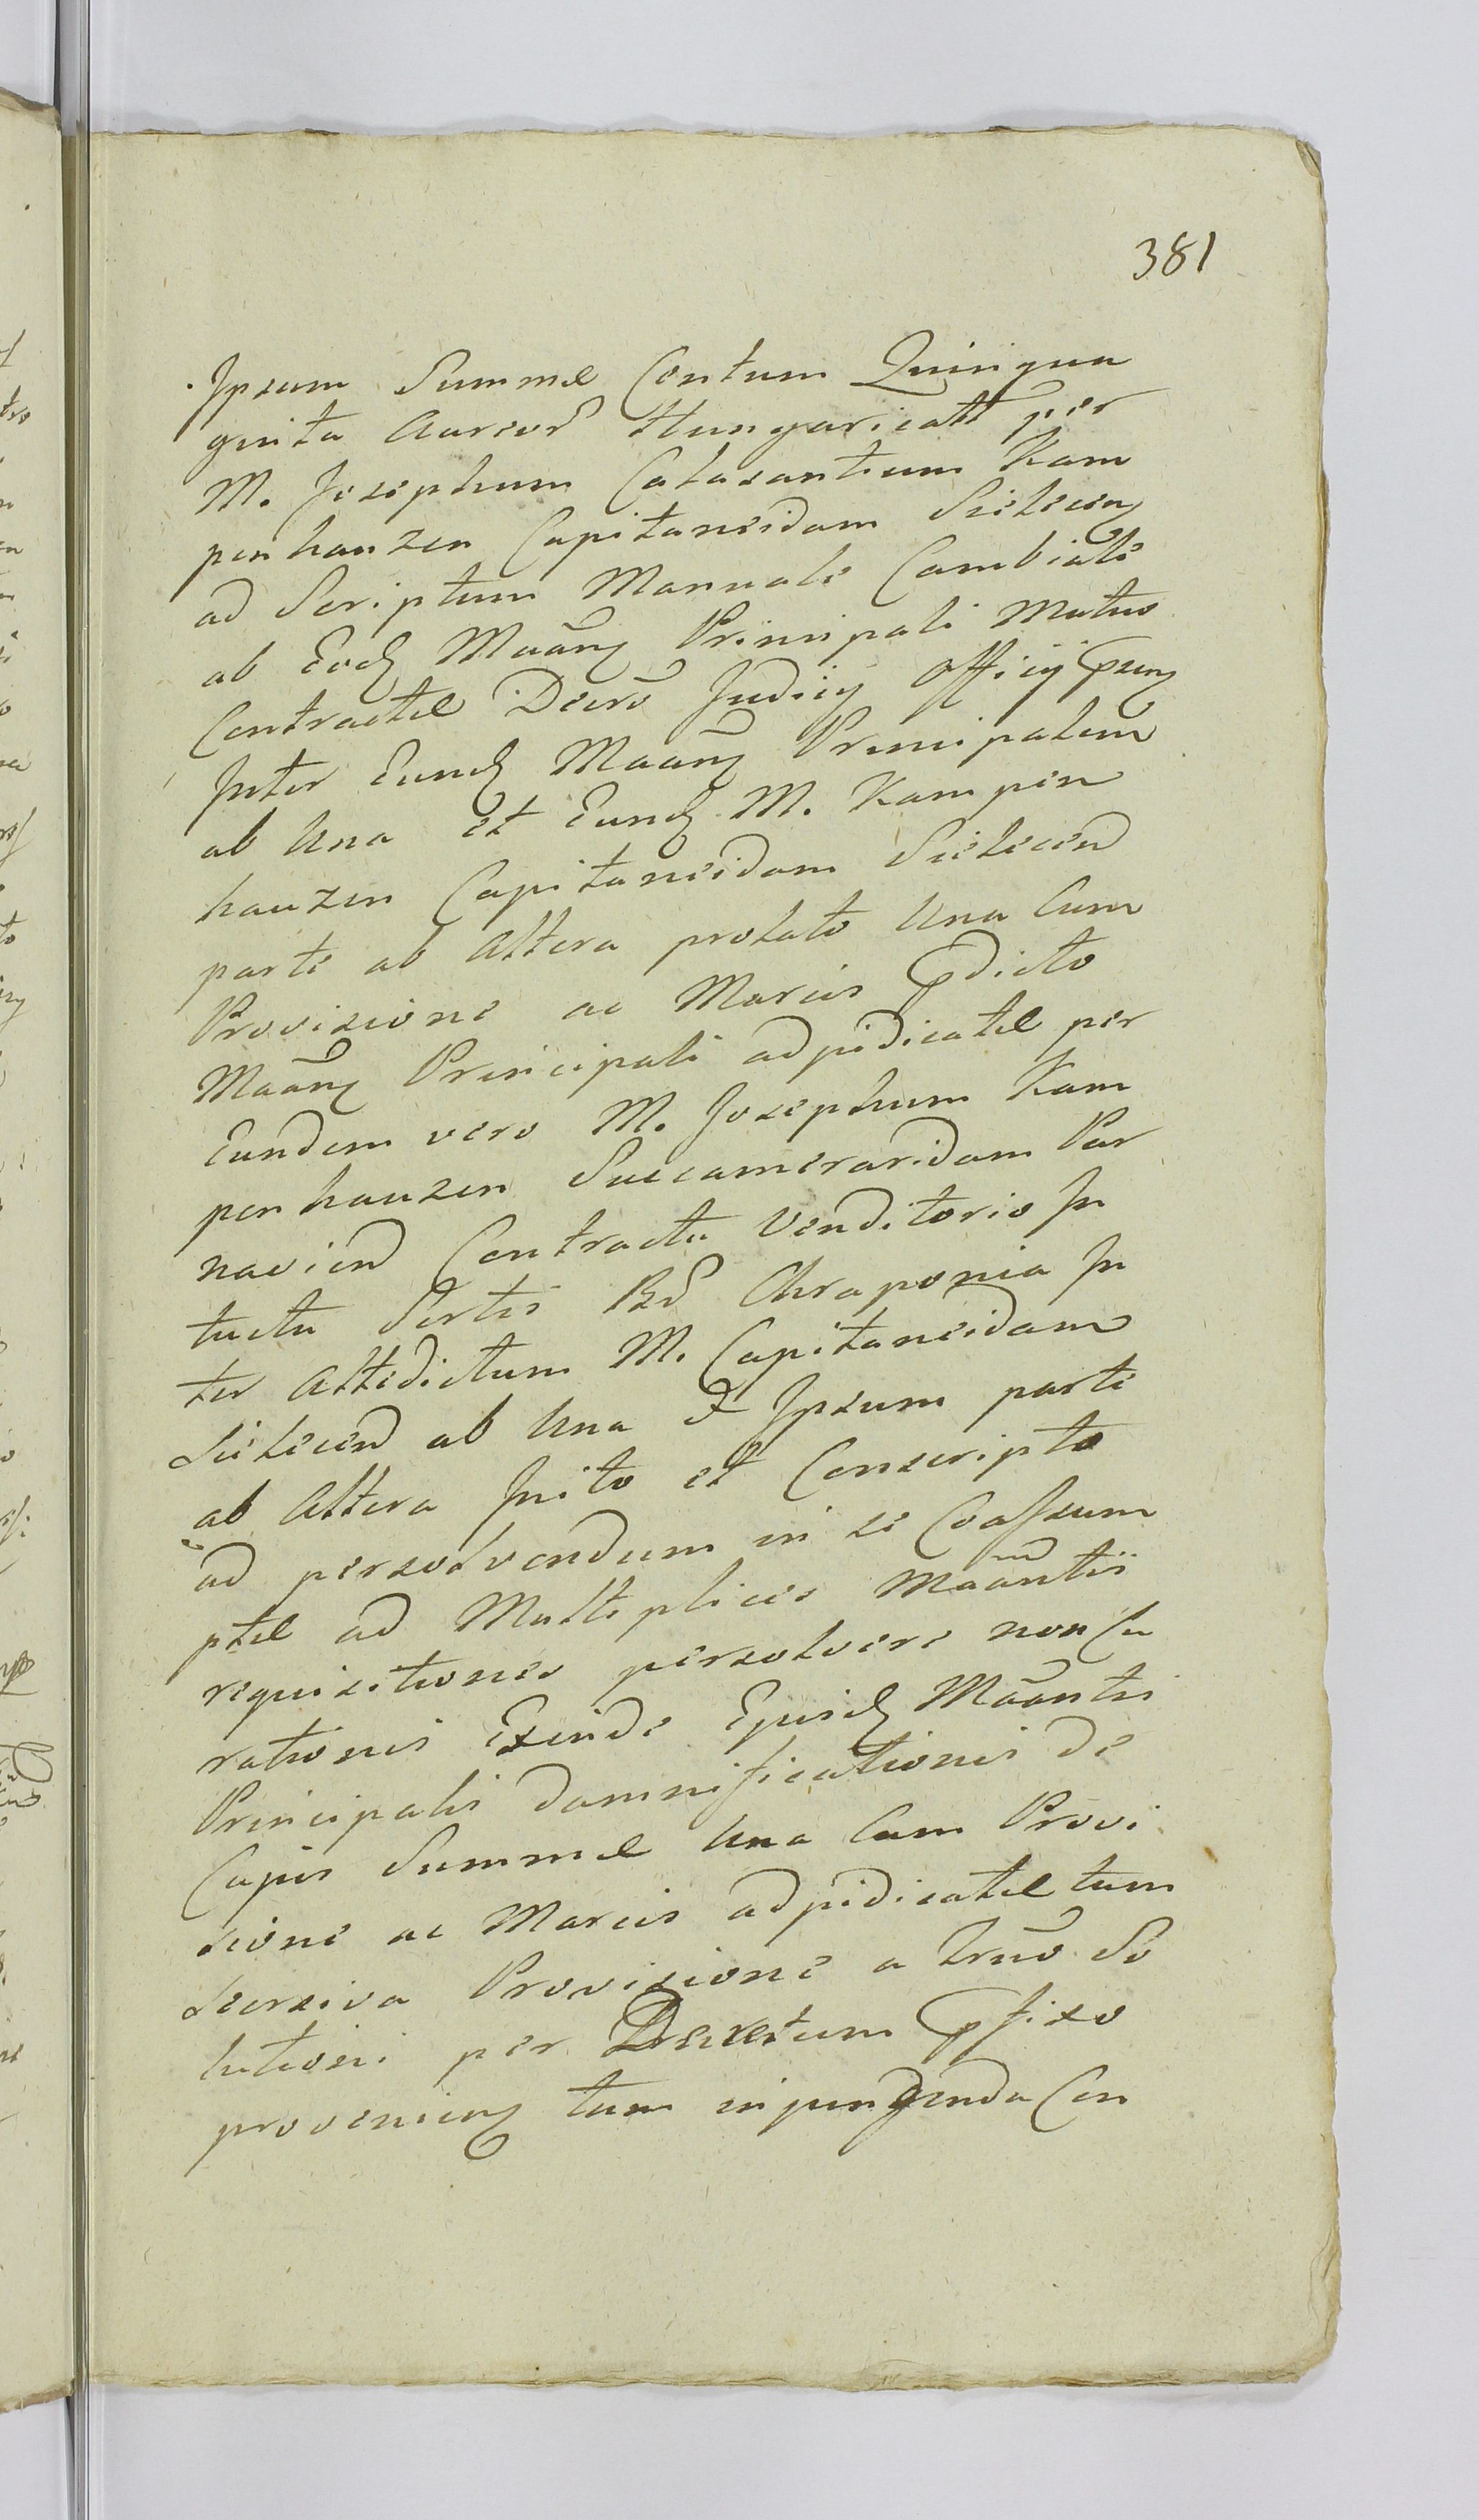 381
Ipsum Summæ Centum Quinqua
ginta Aureor Hungaricall per
M. Josephum Calasantium Kam
penhauzen Capitaneidam Sieleceñ
ad Scriptum Manuale Cambiale
ab Eod Maañ Principali Mutuo
Contractæ Decro Judicy Officij Præñ
Inter Eund Maañ Principalem
ab Una et Eund M. Kampen
hauzen Capitaneidam Sielecen
parte ab Altera prolato Una Cum
Provisione ac Marcis prædicto
Maañ Principali adjudicatæ per
Eundem vero M. Josephum Kam
penhauzen Succameraridam Par
navien Contractu Venditorio In
tuitu Sortis Bd Chraponia In
ter Attedictum M. Capitaneidam
Sielecen ab Una & Ipsum parte
ab Altera Inito et Conscripto
ad persolvendum in se Coassum
ptæ ad Multiplices Maantis
requisitiones persolvere non Cu
rationis Exinde Ejusd Maantis
Principalis damnificationis de
Cujus Summæ Una Cum Provi
sione ac Marcis adjudicatæ tum
decursiva Provisione a Trno So
lutioni per Decretum præfixo
provenieñ tum injungenda Con